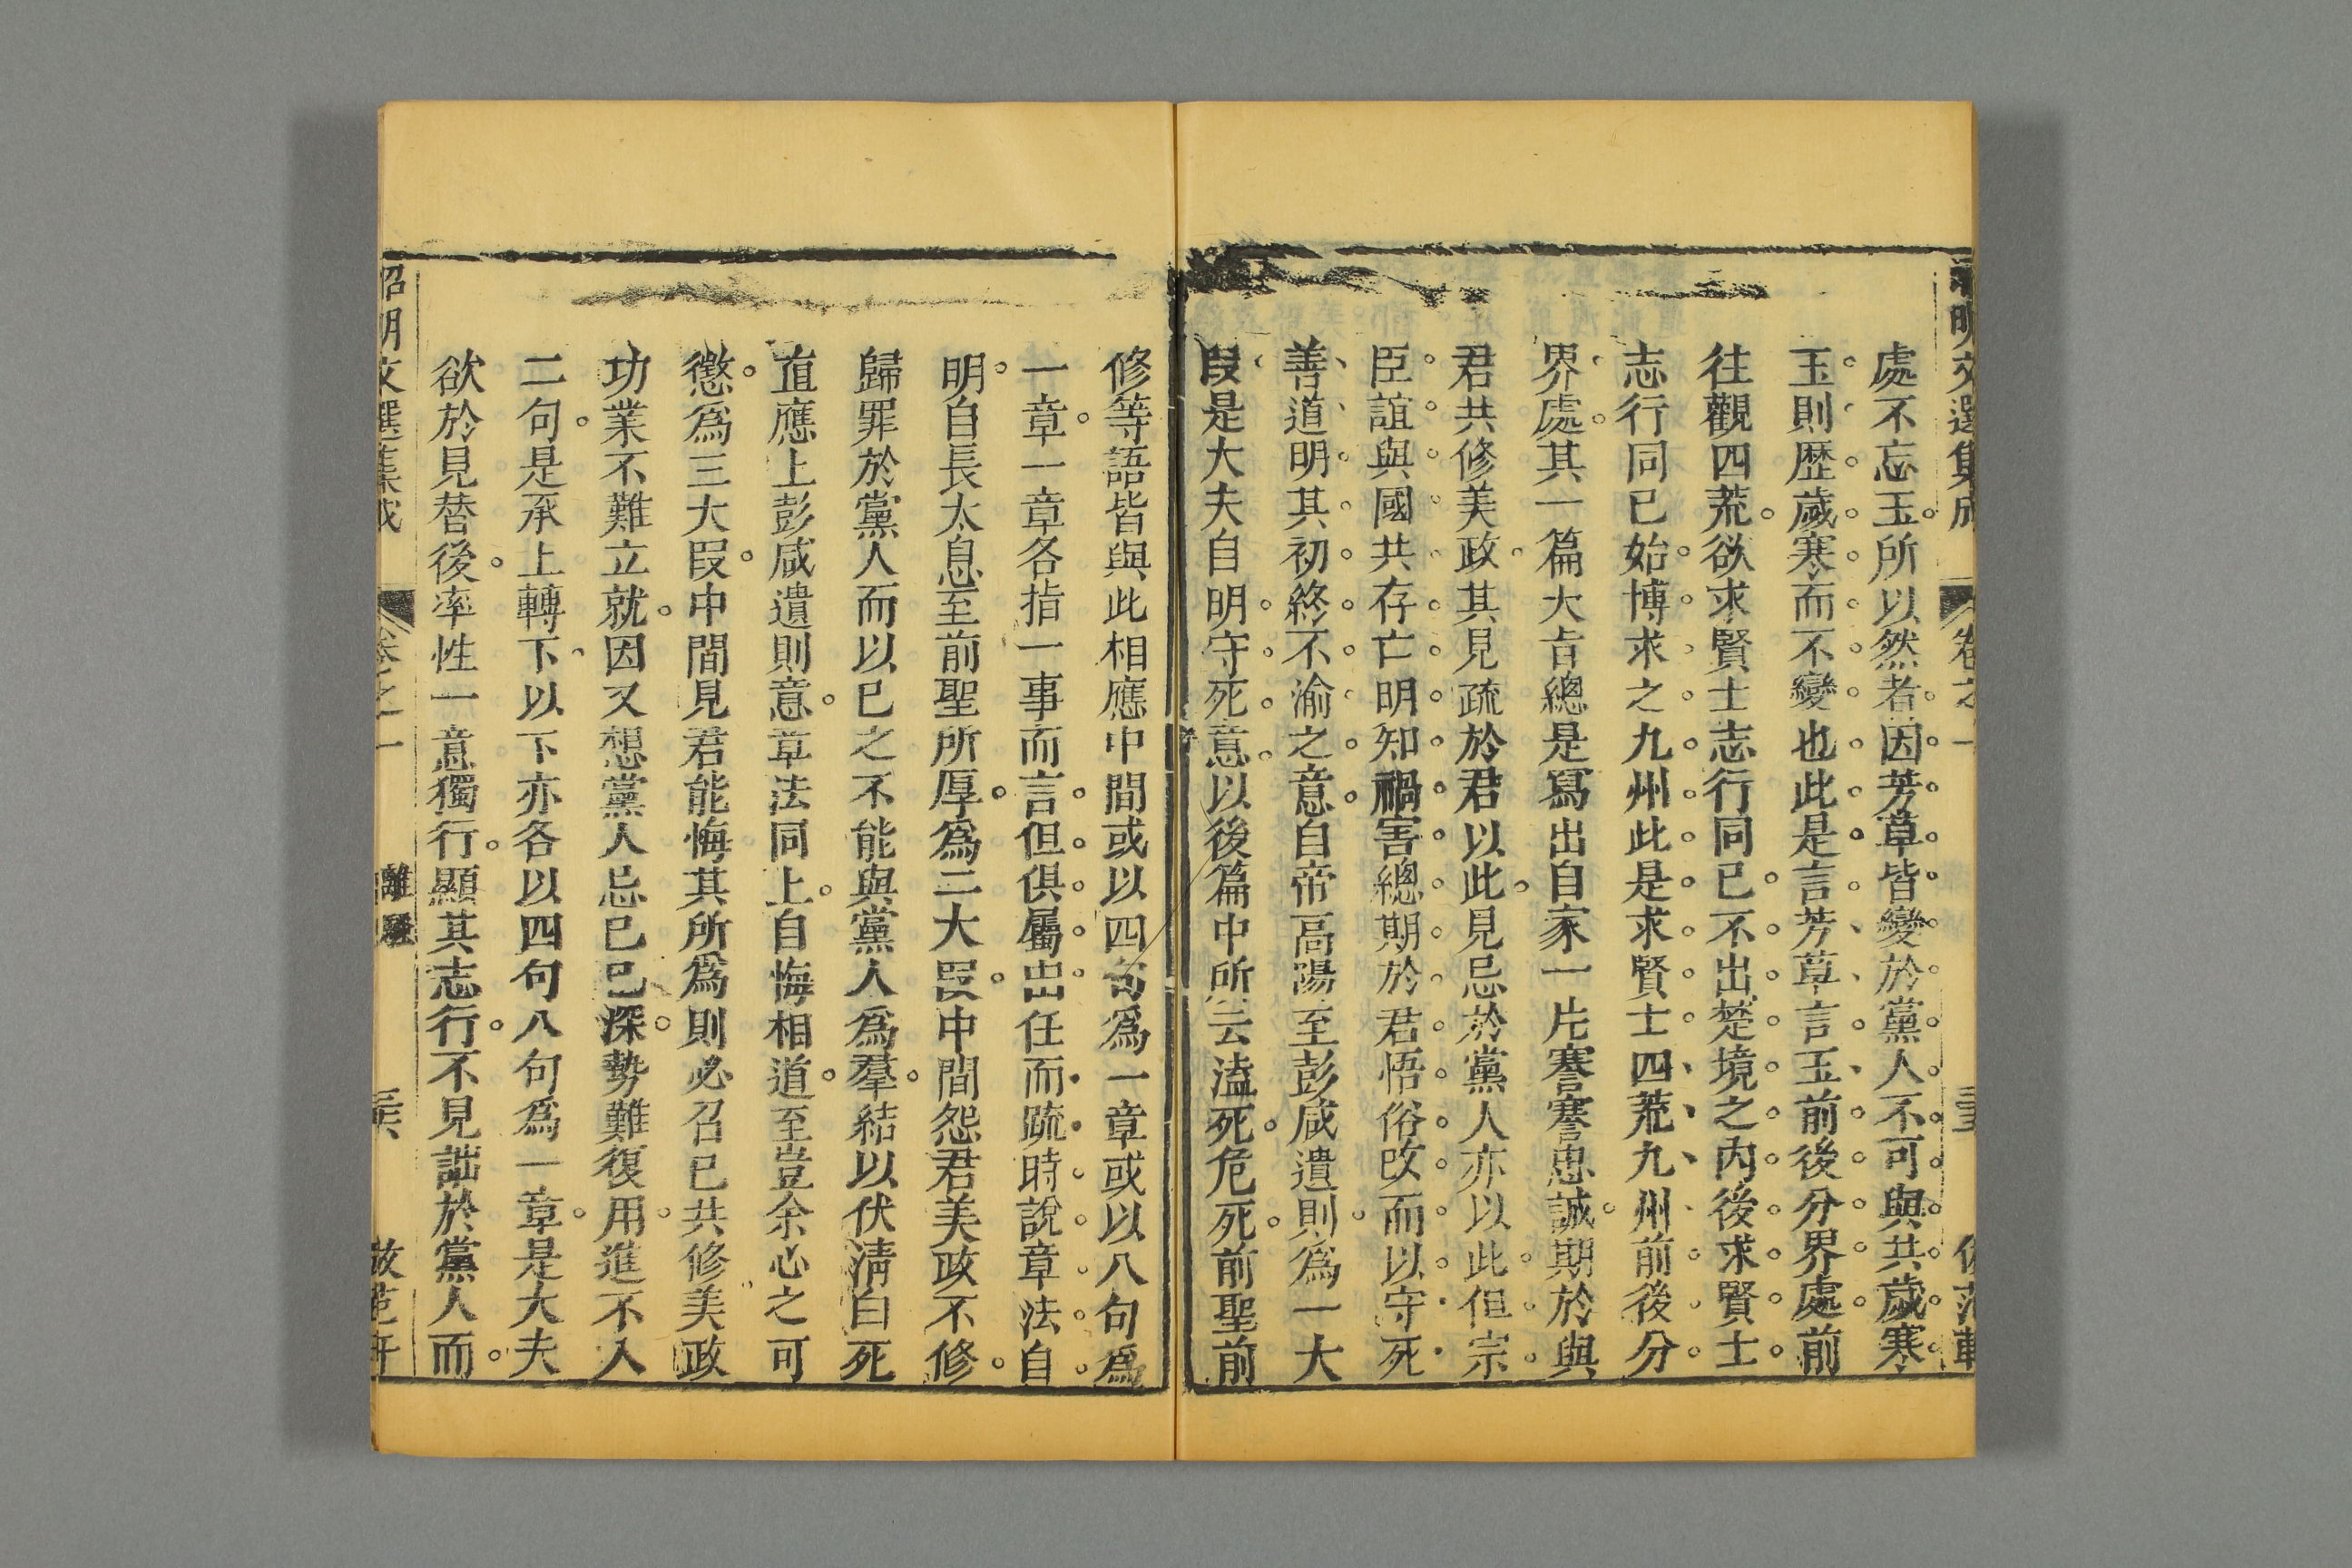 處不忘玉所以然者因芳草皆變於黨人不可與共歲寒
玉則歷歲寒而不變也此是言芳草言玉前後分界處前
往觀四荒欲求賢士志行同已不出楚境之內後求賢士
志行同已始博求之九州此是求賢士四荒九州前後分
界處其一篇大旨總是寫出自家一片謇謇忠誠期於與
君共修美政其見疏於君以此見忌於黨人亦以此但宗
臣誼與國共存亡明知禍害總期於君悟俗改而以守死
善道明其初終不渝之意自帝高陽至彭咸遺則為一大
段是大夫自明守死意以後篇中所云溘死危死前聖前
修等語皆與此相應中間或以四句為一章或以八句為
一章一章各指一事而言但俱屬出任而疏時說章法自
明自長太息至前聖所厚為二大段中間怨君美政不修
歸罪於黨人而以已之不能與黨人為羣結以伏清白死
直應上彭咸遺則意章法同上自悔相道至豈余心之可
懲為三大段中間見君能悔其所為則必召已共修美政
功業不難立就因又想黨人忌已已深勢難復用進不入
二句是承上轉下以下亦各以四句八句為一章是大夫
欲於見替後率性一意獨行顯其志行不見詘於黨人而
昭明文選集成 卷之一 離騷